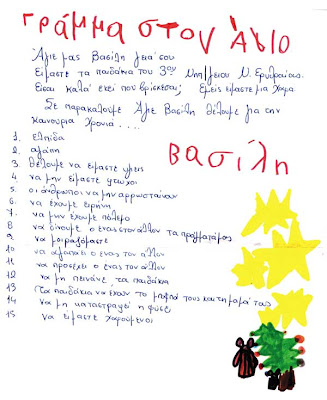 Γράμμα στον Άγιο
Βασίλη
Άγιε μας Βασίλη γειά σου
Είμαστε τα παιδάκια του 3ου Νηπ/γείου Ν. Ερυθραίας.
Είσαι καλά εκεί που βρίσκεσαι; Εμείς είμαστε μια χαρά
Σε παρακαλούμε Άγιε Βασίλη θέλουμε για την
καινούρια χρονιά....
1. ελπίδα
2. αγάπη
3. θέλουμε να είμαστε υγιείς
4. να μην είμαστε φτωχοί
5. οι άνθρωποι να μην αρρωσταίνουν
6. να έχουμε ειρήνη
7. να μην έχουμε πόλεμο
8. να ακούμε ο ένας τον άλλον
9. να μοιραζόμαστε τα πράγματά μας
10. να αγαπάει ο ένας τον άλλον
11. να προσέχει ο ένας τον άλλον
12. να μη πεινάνε τα παιδάκια
13. Τα παιδάκια να έχουν το μπαμπά τους και τη μαμά τους
14. να μη καταστραφεί η φύση
15. να είμαστε χαρούμενοι